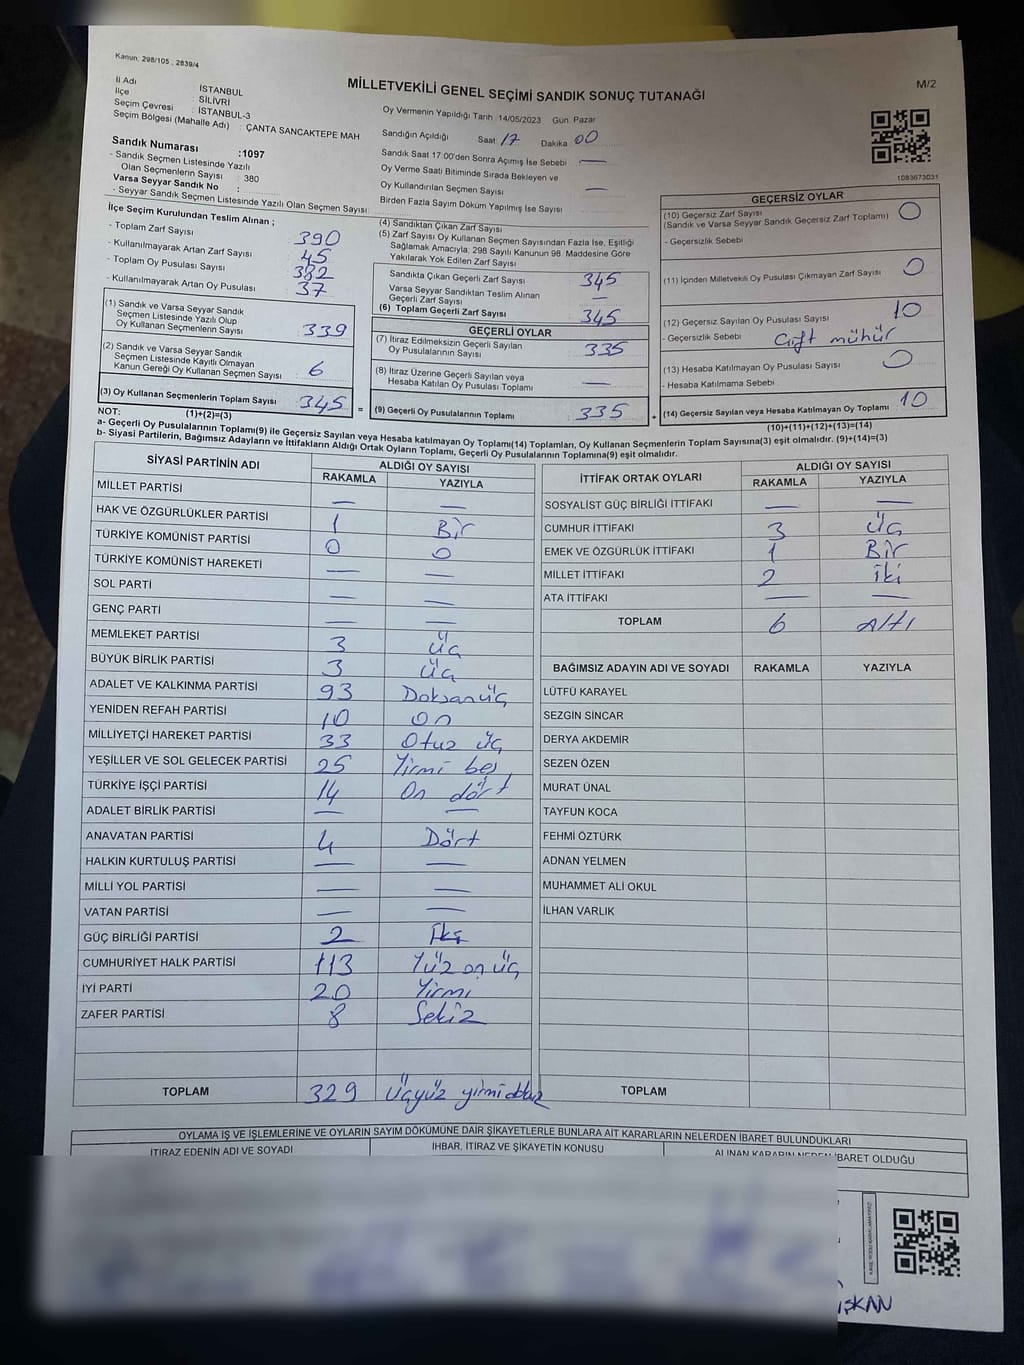 Kanun: 298/105 , 2839/4
MİLLETVEKİLİ GENEL SEÇİMİ SANDIK SONUÇ TUTANAĞI
M/2
İl Adı : İSTANBUL
İlçe : SİLİVRİ
Seçim Çevresi : İSTANBUL-3
Seçim Bölgesi (Mahalle Adı) : ÇANTA SANCAKTEPE MAH
Sandık Numarası :1097
- Sandık Seçmen Listesinde Yazılı
Olan Seçmenlerin Sayısı : 380
Varsa Seyyar Sandık No :
- Seyyar Sandık Seçmen Listesinde Yazılı Olan Seçmen Sayısı:
Oy Vermenin Yapıldığı Tarih :14/05/2023 Gün: Pazar
Sandığın Açıldığı Saat: 17 Dakika: 00
Sandık Saat 17:00'den Sonra Açımış İse Sebebi : —
Oy Verme Saati Bitiminde Sırada Bekleyen ve
Oy Kullandırılan Seçmen Sayısı : —
Birden Fazla Sayım Döküm Yapılmış İse Sayısı :
1083673031
İlçe Seçim Kurulundan Teslim Alınan ;
- Toplam Zarf Sayısı : 390
- Kullanılmayarak Artan Zarf Sayısı : 45
- Toplam Oy Pusulası Sayısı : 382
- Kullanılmayarak Artan Oy Pusulası : 37
(1) Sandık ve Varsa Seyyar Sandık
Seçmen Listesinde Yazılı Olup
Oy Kullanan Seçmenlerin Sayısı : 339
(2) Sandık ve Varsa Seyyar Sandık
Seçmen Listesinde Kayıtlı Olmayan
Kanun Gereği Oy Kullanan Seçmen Sayısı : 6
(3) Oy Kullanan Seçmenlerin Toplam Sayısı : 345
=
(4) Sandıktan Çıkan Zarf Sayısı :
(5) Zarf Sayısı Oy Kullanan Seçmen Sayısından Fazla İse, Eşitliği
Sağlamak Amacıyla, 298 Sayılı Kanunun 98. Maddesine Göre
Yakılarak Yok Edilen Zarf Sayısı :
Sandıkta Çıkan Geçerli Zarf Sayısı : 345
Varsa Seyyar Sandıktan Teslim Alınan
Geçerli Zarf Sayısı : —
(6) Toplam Geçerli Zarf Sayısı : 345
GEÇERLİ OYLAR
(7) İtiraz Edilmeksizin Geçerli Sayılan
Oy Pusulalarının Sayısı : 335
(8) İtiraz Üzerine Geçerli Sayılan veya
Hesaba Katılan Oy Pusulası Toplamı : —
(9) Geçerli Oy Pusulalarının Toplamı : 335
+
GEÇERSİZ OYLAR
(10) Geçersiz Zarf Sayısı : 0
(Sandık ve Varsa Seyyar Sandık Geçersiz Zarf Toplamı)
- Geçersizlik Sebebi :
(11) İçinden Milletvekili Oy Pusulası Çıkmayan Zarf Sayısı : 0
(12) Geçersiz Sayılan Oy Pusulası Sayısı : 10
- Geçersizlik Sebebi : Çift mühür
(13) Hesaba Katılmayan Oy Pusulası Sayısı : 0
- Hesaba Katılmama Sebebi :
(14) Geçersiz Sayılan veya Hesaba Katılmayan Oy Toplamı : 10
NOT: (1)+(2)=(3)
(10)+(11)+(12)+(13)=(14)
a- Geçerli Oy Pusulalarının Toplamı(9) ile Geçersiz Sayılan veya Hesaba katılmayan Oy Toplamı(14) Toplamları, Oy Kullanan Seçmenlerin Toplam Sayısına(3) eşit olmalıdır. (9)+(14)=(3)
b- Siyasi Partilerin, Bağımsız Adayların ve İttifakların Aldığı Ortak Oyların Toplamı, Geçerli Oy Pusulalarının Toplamına(9) eşit olmalıdır.
SİYASİ PARTİNİN ADI
ALDIĞI OY SAYISI
RAKAMLA YAZIYLA
MİLLET PARTİSİ — —
HAK VE ÖZGÜRLÜKLER PARTİSİ 1 Bir
TÜRKİYE KOMÜNİST PARTİSİ 0 0
TÜRKİYE KOMÜNİST HAREKETİ — —
SOL PARTİ — —
GENÇ PARTİ — —
MEMLEKET PARTİSİ 3 Üç
BÜYÜK BİRLİK PARTİSİ 3 Üç
ADALET VE KALKINMA PARTİSİ 93 Doksan üç
YENİDEN REFAH PARTİSİ 10 On
MİLLİYETÇİ HAREKET PARTİSİ 33 Otuz üç
YEŞİLLER VE SOL GELECEK PARTİSİ 25 Yirmi beş
TÜRKİYE İŞÇİ PARTİSİ 14 On dört
ADALET BİRLİK PARTİSİ — —
ANAVATAN PARTİSİ 4 Dört
HALKIN KURTULUŞ PARTİSİ — —
MİLLİ YOL PARTİSİ — —
VATAN PARTİSİ — —
GÜÇ BİRLİĞİ PARTİSİ 2 İki
CUMHURİYET HALK PARTİSİ 113 Yüz on üç
İYİ PARTİ 20 Yirmi
ZAFER PARTİSİ 8 Sekiz
TOPLAM 329 Üçyüz yirmi dokuz
İTTİFAK ORTAK OYLARI
ALDIĞI OY SAYISI
RAKAMLA YAZIYLA
SOSYALİST GÜÇ BİRLİĞİ İTTİFAKI — —
CUMHUR İTTİFAKI 3 Üç
EMEK VE ÖZGÜRLÜK İTTİFAKI 1 Bir
MİLLET İTTİFAKI 2 İki
ATA İTTİFAKI — —
TOPLAM 6 Altı
BAĞIMSIZ ADAYIN ADI VE SOYADI RAKAMLA YAZIYLA
LÜTFÜ KARAYEL
SEZGİN SİNCAR
DERYA AKDEMİR
SEZEN ÖZEN
MURAT ÜNAL
TAYFUN KOCA
FEHMİ ÖZTÜRK
ADNAN YELMEN
MUHAMMET ALİ OKUL
İLHAN VARLIK
TOPLAM
OYLAMA İŞ VE İŞLEMLERİNE VE OYLARIN SAYIM DÖKÜMÜNE DAİR ŞİKAYETLERLE BUNLARA AİT KARARLARIN NELERDEN İBARET BULUNDUKLARI
İTİRAZ EDENİN ADI VE SOYADI
İHBAR, İTİRAZ VE ŞİKAYETİN KONUSU
ALINAN KARARIN NEDEN İBARET OLDUĞU